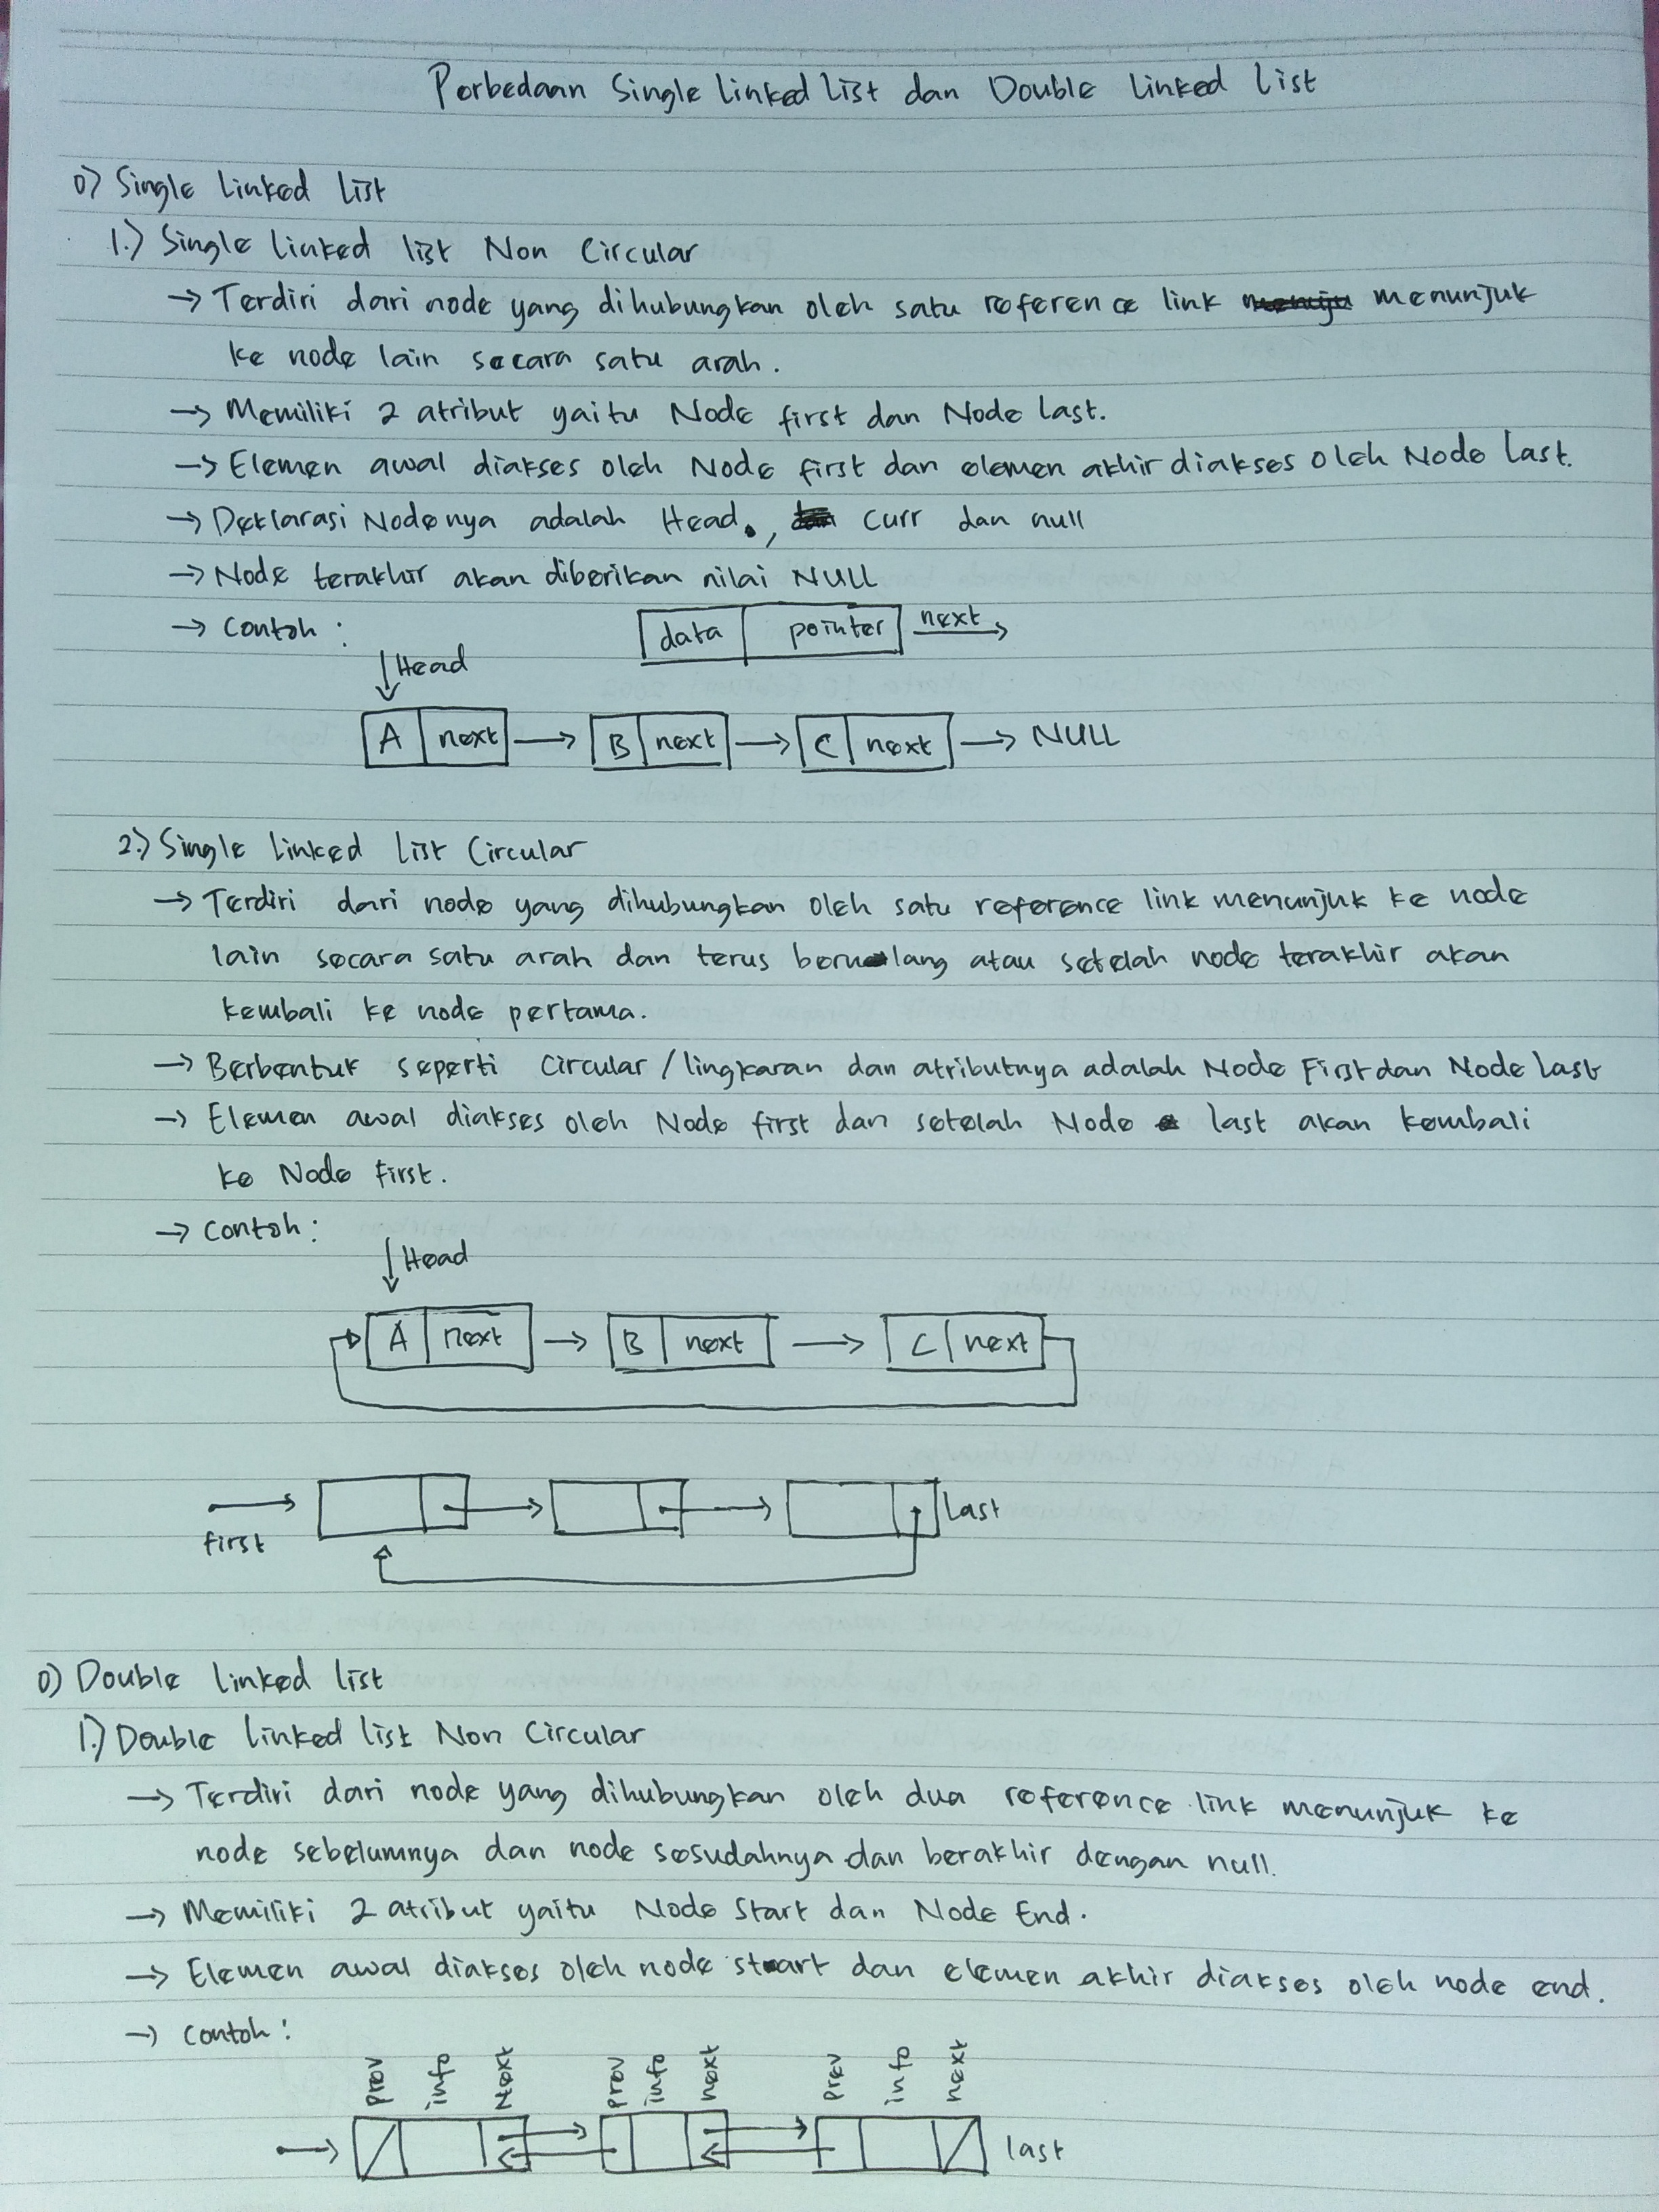 Perbedaan Single Linked List dan Double Linked List
o) Single Linked List
1.) Single linked list Non Circular
→ Terdiri dari node yang dihubungkan oleh satu reference link menuju menunjuk
ke node lain secara satu arah.
→ Memiliki 2 atribut yaitu Node first dan Node Last.
→ Elemen awal diakses oleh Node first dan elemen akhir diakses oleh Node Last.
→ Deklarasi Nodenya adalah Head, curr dan null
→ Node terakhir akan diberikan nilai NULL
→ Contoh :
data pointer next
Head
A next → B next → C next → NULL
2.) Single Linked List Circular
→ Terdiri dari node yang dihubungkan oleh satu reference link menunjuk ke node
lain secara satu arah dan terus berulang atau setelah node terakhir akan
kembali ke node pertama.
→ Berbentuk seperti Circular / lingkaran dan atributnya adalah Node First dan Node Last
→ Elemen awal diakses oleh Node first dan setelah Node last akan kembali
ke Node first.
→ Contoh :
Head
A next → B next → C next
first last
o) Double linked list
1.) Double linked list Non Circular
→ Terdiri dari node yang dihubungkan oleh dua reference link menunjuk ke
node sebelumnya dan node sesudahnya dan berakhir dengan null.
→ Memiliki 2 atribut yaitu Node Start dan Node End.
→ Elemen awal diakses oleh node start dan elemen akhir diakses oleh node end.
→ Contoh :
prev info Next prev info next prev info next
last